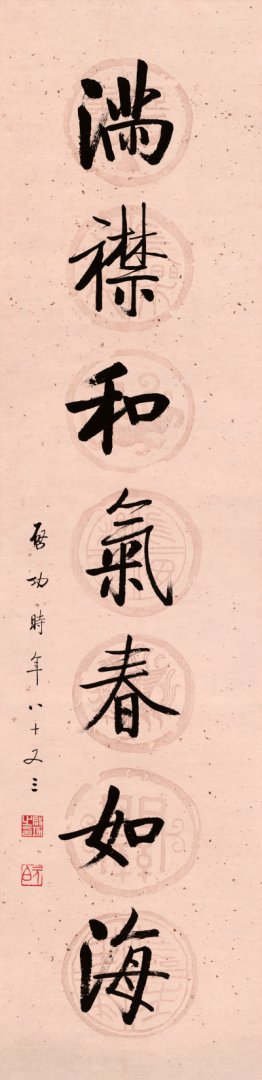 満襟和氣春如海
啓功時年八十又三